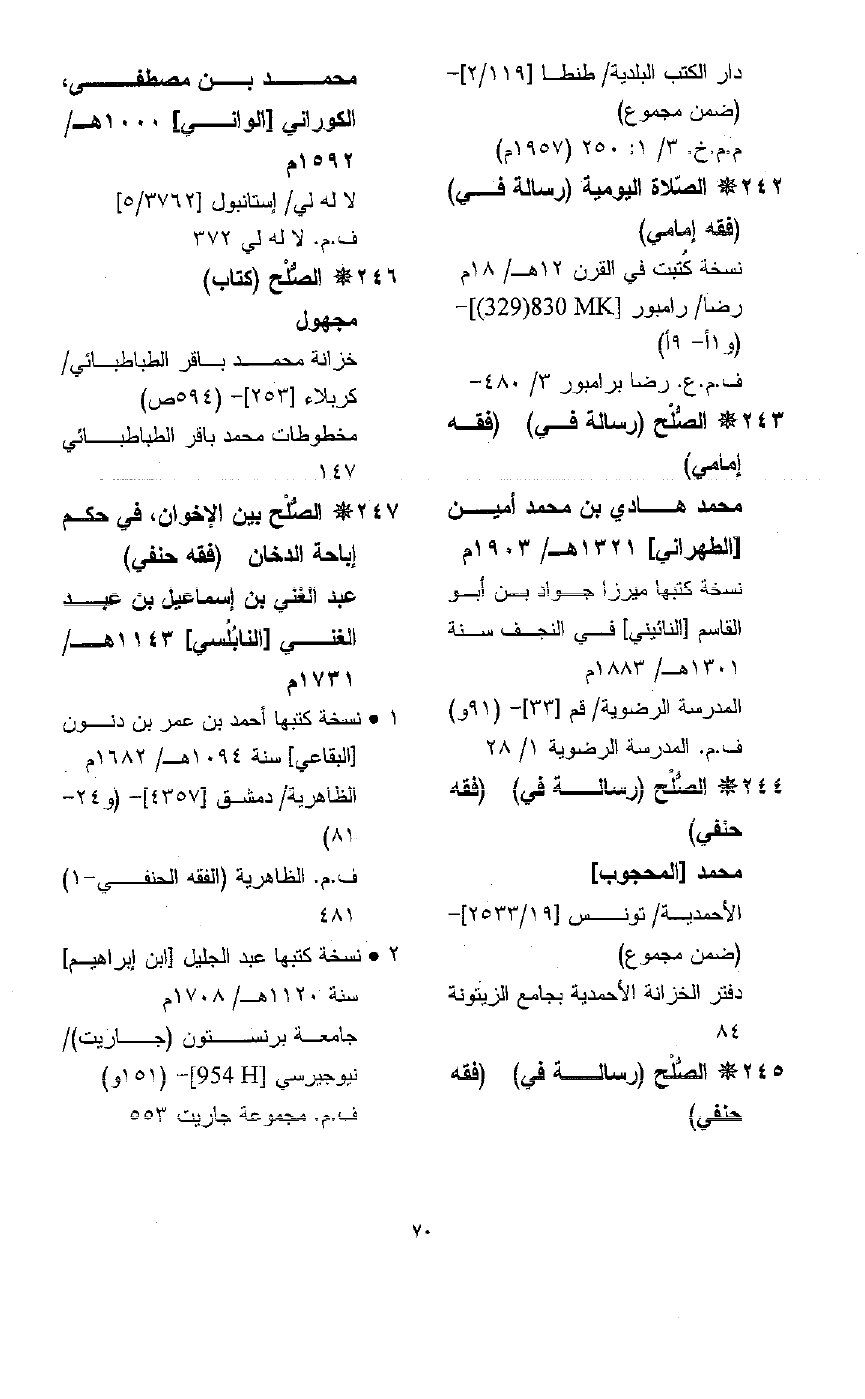 دار الكتب البلدية/ طنطا [٢/١١٩]-
(ضمن مجموع)
م.م.خ. ٣/ ١: ٢٥٠ (١٩٥٧م)
٢٤٢* الصّلاة اليومية (رسالة في)
(فقه إمامي)
نسخة كُتبت في القرن ١٢هـ/ ١٨م
رضا/ رامبور [830(329) MK]-
(و ١أ- ٩أ)
ف.م.ع. رضا برامبور ٣/ ٤٨٠-
٢٤٣* الصُّلْح (رسالة في) (فقه
إمامي)
محمد هادي بن محمد أمين
[الطهراني] ١٣٢١هـ/ ١٩٠٣م
نسخة كتبها ميرزا جواد بن أبو
القاسم [النائيني] في النجف سنة
١٣٠١هـ/ ١٨٨٣م
المدرسة الرضوية/ قم [٣٣]- (٩١و)
ف.م. المدرسة الرضوية ١/ ٢٨
٢٤٤* الصُّلْح (رسالة في) (فقه
حنفي)
محمد [المحجوب]
الأحمدية/ تونس [٢٥٣٣/١٩]-
(ضمن مجموع)
دفتر الخزانة الأحمدية بجامع الزيتونة
٨٤
٢٤٥* الصُّلْح (رسالة في) (فقه
حنفي)
محمد بن مصطفى،
الكوراني [الواني] ١٠٠٠هـ/
١٥٩٢م
لا له لي/ إستانبول [٥/٣٧٦٢]
ف.م. لا له لي ٣٧٢
٢٤٦* الصُّلْح (كتاب)
مجهول
خزانة محمد باقر الطباطبائي/
كربلاء [٢٥٣]- (٥٩٤ص)
مخطوطات محمد باقر الطباطبائي
١٤٧
٢٤٧* الصُّلْح بين الإخوان، في حكم
إباحة الدخان (فقه حنفي)
عبد الغني بن إسماعيل بن عبد
الغني [النابُلُسي] ١١٤٣هـ/
١٧٣١م
١ • نسخة كتبها أحمد بن عمر بن دنون
[البقاعي] سنة ١٠٩٤هـ/ ١٦٨٢م
الظاهرية/ دمشق [٤٣٥٧]- (و٢٤-
٨١)
ف.م. الظاهرية (الفقه الحنفي-١)
٤٨١
٢ • نسخة كتبها عبد الجليل [ابن إبراهيم]
سنة ١١٢٠هـ/ ١٧٠٨م
جامعة برنستون (جاريت)/
نيوجيرسي [954 H]- (١٥١و)
ف.م. مجموعة جاريت ٥٥٣
٧٠